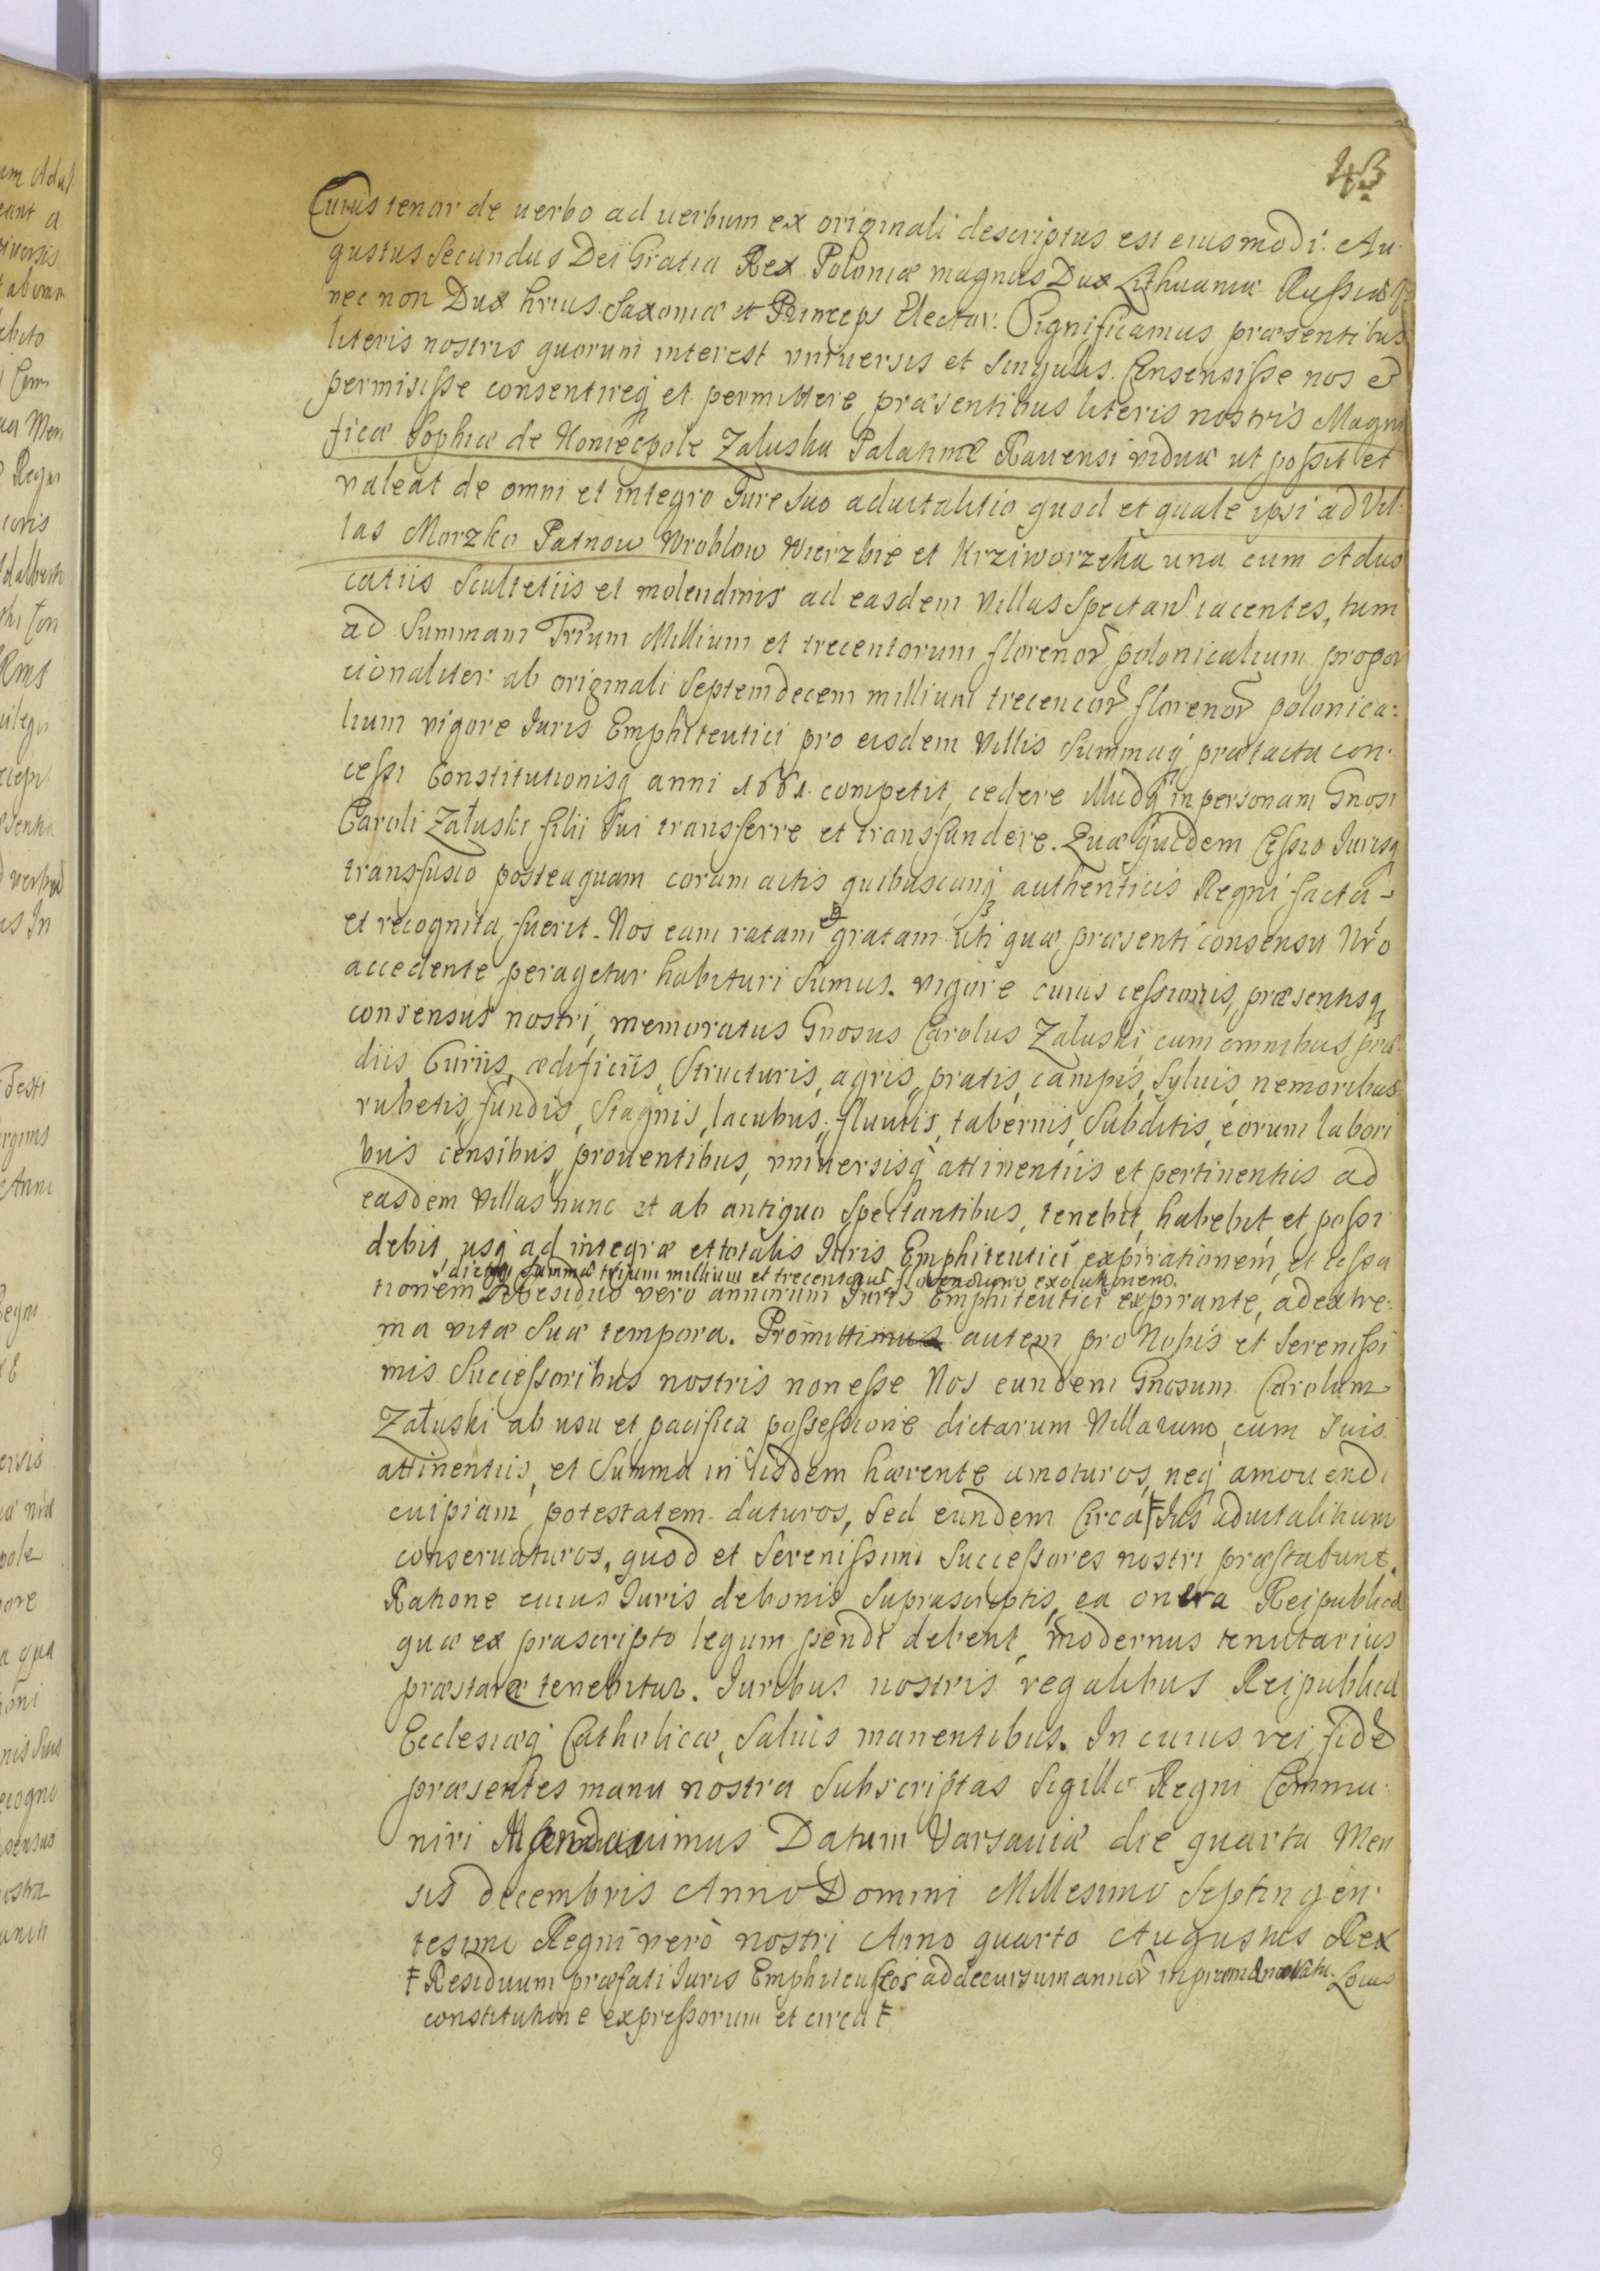 43
Cuius tenor de uerbo ad uerbum ex originali descriptus est eiusmodi. Au-
gustus Secundus Dei Gratia Rex Poloniæ magnus Dux Lithuaniæ Russiæ
nec non Dux hrius Saxoniæ et Princeps Elector. Significamus præsentibus
literis nostris quorum interest vniuersis et singulis. Consensisse nos et
permisisse consentireq et permittere præsentibus literis nostris Magni
ficæ Sophiæ de Koniecpole Zaluska Palatinæ Rauensi viduæ ut possit et
valeat de omni et integro Iure suo aduitalitio quod et quale ipsi ad Vil-
las Morzko Patnow Wroblow Wierzbie et Krziworzeka una cum Aduo
catiis Scultetiis et molendinis ad easdem Villas Spectan iacentes, tum
ad Summam Trium Millium et trecentorum florenor polonicalium propor
cionaliter ab originali Septemdecem millium trecencor florenor polonica:
lium vigore Iuris Emphiteutici pro eisdem Villis Summaq prætacta con-
cessi Constitutionisq anni 1661 competit, cedere illudq in personam Gnosi
Caroli Załuski filii Sui transferre et transfundere. Quæ quidem Cessio Iurisq
transfusio posteaquam coram actis quibuscunq authenticis Regni facta
et recognita fuerit. Nos eam ratam et gratam uti quæ præsenti consensu Nro
accedente peragetur habituri Sumus. vigore cuius cessionis, præsentisq
consensus nostri, memoratus Gnosus Carolus Zaluski cum omnibus præ
diis Curiis, ædificiis, Structuris, agris, pratis, campis, Syluis, nemoribus
rubetis, fundis, Stagnis, lacubus, fluuiis, tabernis, Subditis, eorum labori
bus censibus, prouentibus, vniuersisq attinentiis et pertinentiis ad
easdem Villas nunc et ab antiquo Spectantibus, tenebit, habebit, et possi
debit, usq ad integræ et totalis Iuris Emphiteutici expirationem, et cessa
dictæq Summæ trium millium et trecentorum florenorum exolutionem.
tionem Residuo vero annorum Iuris Emphiteutici expirante, ad extre:
ma vitæ Suæ tempora. Promittimus autem pro Nobis et Serenissi
mis Successoribus nostris non esse Nos eundem Gnosum Carolum
Załuski ab usu et pacifica possessione dictarum Villarum, cum Suis
attinentiis, et Summa in iisdem hærente amoturos, neq amouendi
cuipiam potestatem daturos, Sed eundem Circa ╪ Ius aduitalitium
conseruaturos, quod et Serenissimi Successores nostri præstabunt.
Ratione cuius Iuris de bonis Suprascriptis, ea onera Reipublicæ
quæ ex præscripto legum pendi debent, modernus tenutarius
præstare tenebitur. Iuribus nostris regalibus Reipublicæ
Ecclesiæq Catholicæ, Saluis manentibus. In cuius rei fide
præsentes manu nostra Subscriptas Sigillo Regni Commu-
niri Mandauimus Datum Varsauiæ die quarta Men
sis decembris Anno Domini Millesimo Septingen-
tesimo Regni verò nostri Anno quarto Augustus Rex
╪ Residuum præfati Iuris Emphiteuseos ad decursum annor in præmemorata Locus
constitutione expressorum et circa ╪